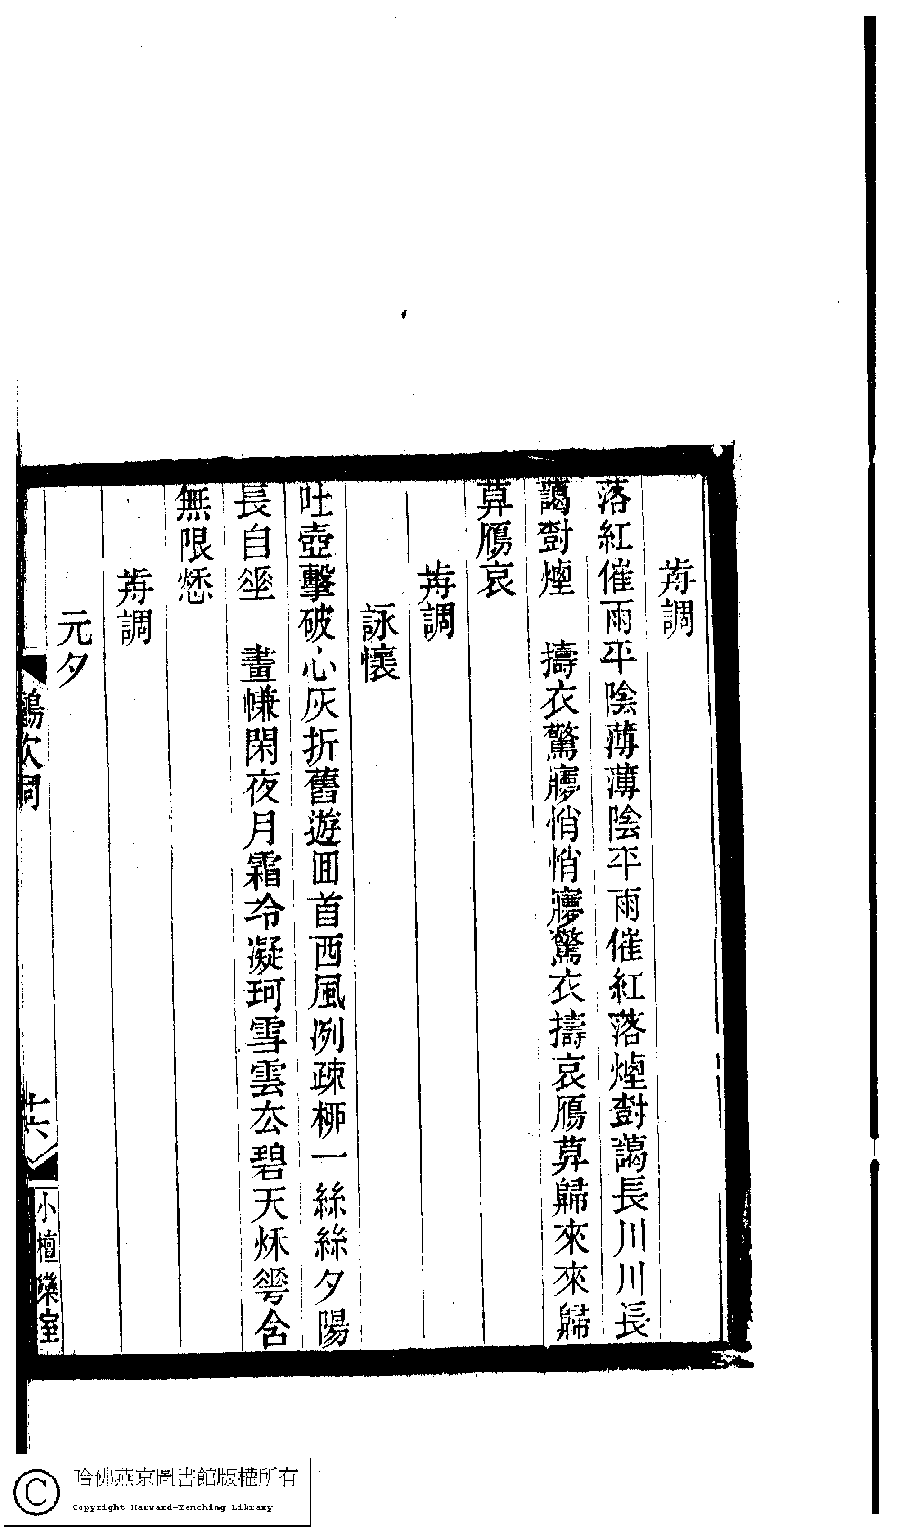 歬調
落紅催雨平陰薄薄陰平雨催紅落煙對譪長川川長
譪對煙　擣衣驚㝱悄悄㝱驚衣擣哀鴈莫歸來來歸
莫鴈哀
歬調
詠懷
吐壺擊破心灰折舊遊回首西風冽疎柳一絲絲夕陽
長自𠂹　畫㡘閑夜月霜冷凝珂雪雲厺碧天秌𠌶含
無限愁
歬調
元夕
吹詞
十六
小檀欒室
哈佛燕京圖書館版權所有
Copyright Harvard-Yenching Library